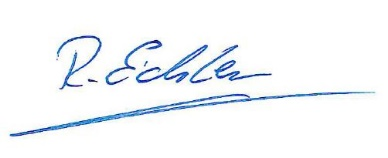 R. Eichler